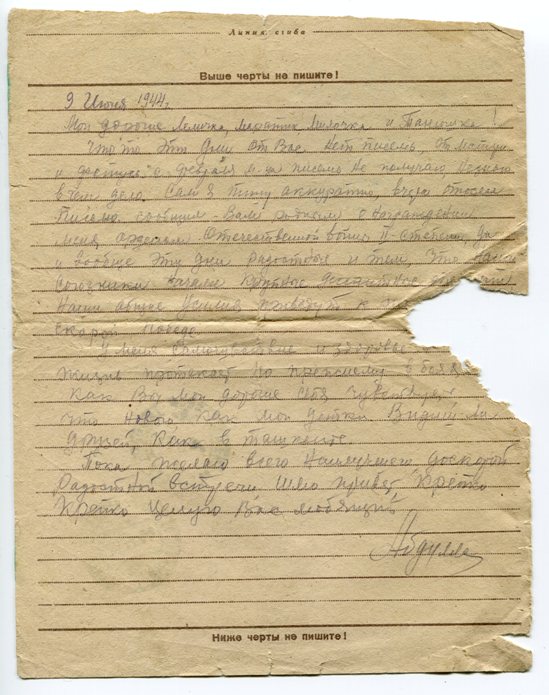 Линия сгиба
Выше черты не пишите!
9 Июня 1944г.
Мои дорогие Лемочка, Маратик Лилочка и Танюшка!
Что то эти дни от Вас нет писем, От
и с февраля м-ца писем не получаю
в чем дело. Сам я пишу аккуратно, вчера отослал
Письмо сообщил Вам родными о награждении
меня орденом Отечественной войны II степени, да
и вообще эти дни радостные и тем, что наши
союзники начали крупное десантное
Наши общие усилия приведут к
скорой победе.
У меня самочувствие и здоровье
Жизнь протекает по прежнему в боях
Как Вы мои дорогие себя чувствуете
Что нового, как мои детки
друзей, как в Ташкенте.
Пока желаю всего наилучшего, до скорой
Радостной встречи шлю привет, крепко
Крепко целую Вас любящий
Абдулла
Ниже черты не пишите!